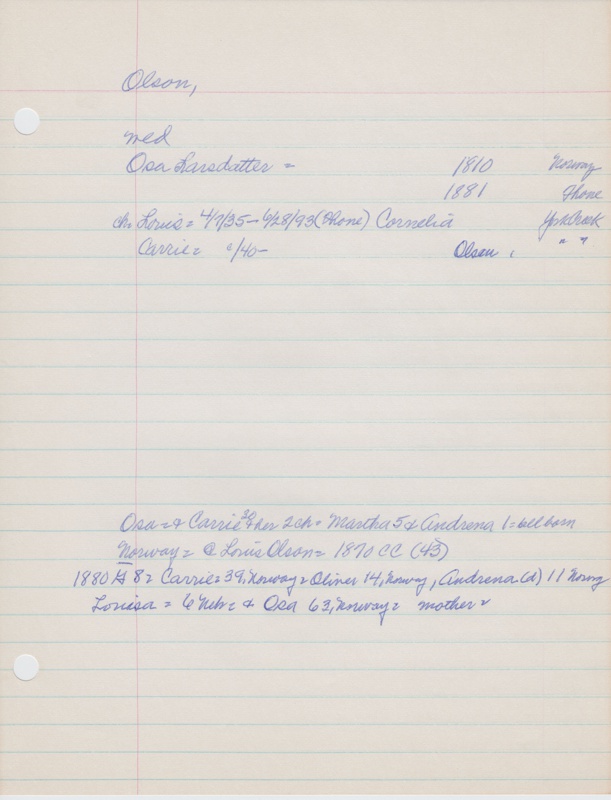 Olson,
med
Osa Larsdatter = 1810 Norway
1881 Ihone
ch. Louis = 4/7/35 - 6/28/93 (Ihone) Cornelia York Creek
Carrie = c/40 - Olson, " "
Osa = & Carrie 30 & her 2 ch = Martha 5 & Andrena 1 = all born
Norway = @ Louis Olson = 1870 CC (43)
1880 H 8 = Carrie = 39, Norway = Oliver 14, Norway, Andrena (d) 11 Norwy
Louisa = 6 Neb = & Osa 63, Norway = mother =